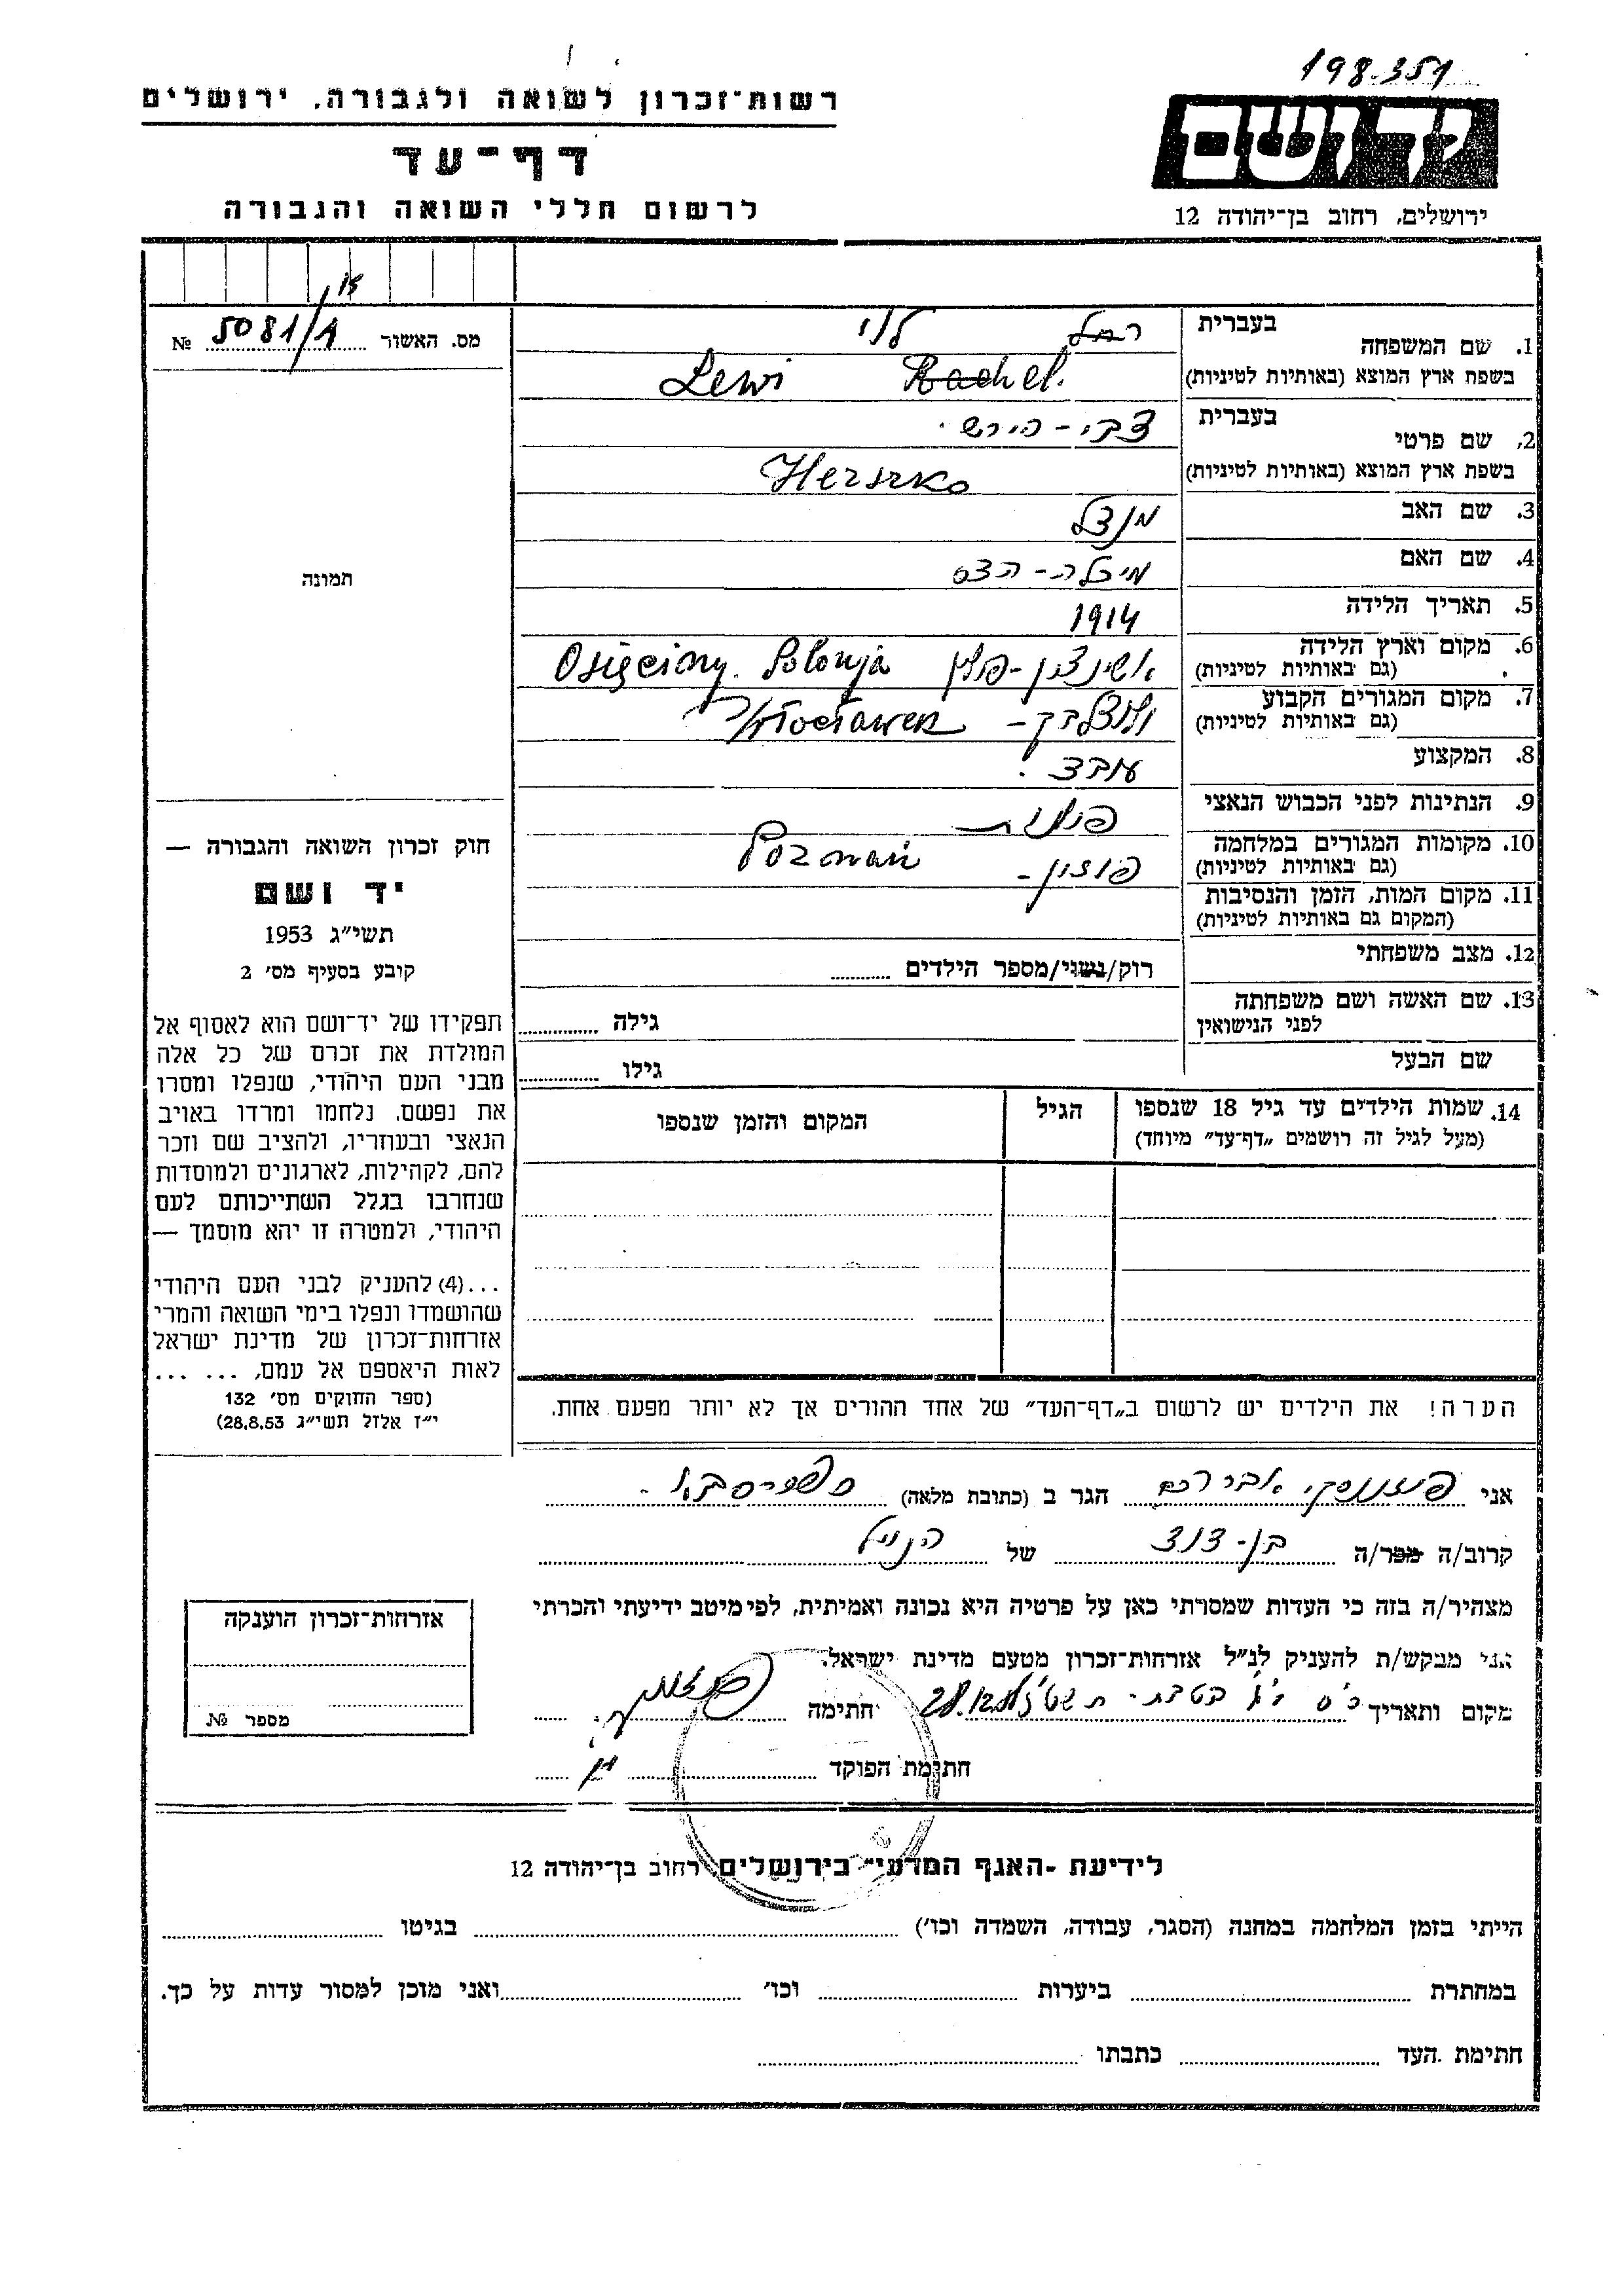 198.351
רשות־זכרון לשואה ולגבורה, ירושלים
ידושם
דף־עד
לרשום חללי השואה והגבורה
ירושלים, רחוב בן־יהודה 12
מס. האשור 5081/A №
1. שם המשפחה בעברית רחל לוי
בשפת ארץ המוצא (באותיות לטיניות) Lewi Rachel.
2. שם פרטי בעברית צבי - הירש.
בשפת ארץ המוצא (באותיות לטיניות) Herszko
3. שם האב מנדל
4. שם האם מיכלה - הדס
5. תאריך הלידה 1914
6. מקום וארץ הלידה
(גם באותיות לטיניות) Osięciny. Polonja
7. מקום המגורים הקבוע
(גם באותיות לטיניות) Włocławek
8. המקצוע
9. הנתינות לפני הכבוש הנאצי פולנית
10. מקומות המגורים במלחמה
(גם באותיות לטיניות) פוזנן - Poznań
11. מקום המות, הזמן והנסיבות
(המקום גם באותיות לטיניות)
12. מצב משפחתי רוק/נשוי/מספר הילדים
13. שם האשה ושם משפחתה
לפני הנישואין גילה
שם הבעל גילו
14. שמות הילדים עד גיל 18 שנספו
(מעל לגיל זה רושמים „דף־עד” מיוחד)
הגיל
המקום והזמן שנספו
תמונה
חוק זכרון השואה והגבורה —
יד ושם
תשי״ג 1953
קובע בסעיף מס׳ 2
תפקידו של יד־ושם הוא לאסוף אל
המולדת את זכרם של כל אלה
מבני העם היהודי, שנפלו ומסרו
את נפשם, נלחמו ומרדו באויב
הנאצי ובעוזריו, ולהציב שם וזכר
להם, לקהילות, לארגונים ולמוסדות
שנחרבו בגלל השתייכותם לעם
היהודי, ולמטרה זו יהא מוסמך —
...(4) להעניק לבני העם היהודי
שהושמדו ונפלו בימי השואה והמרי
אזרחות־זכרון של מדינת ישראל
לאות היאספם אל עמם, ... ...
(ספר החוקים מס׳ 132
י״ז אלול תשי״ג 28.8.53)
הערה! את הילדים יש לרשום ב„דף־העד” של אחד ההורים אך לא יותר מפעם אחת.
אני אברהם הגר ב (כתובת מלאה)
קרוב/ה מכר/ה בן-דוד של הנ״ל
מצהיר/ה בזה כי העדות שמסרתי כאן על פרטיה היא נכונה ואמיתית, לפי מיטב ידיעתי והכרתי
אני מבקש/ת להעניק לנ״ל אזרחות־זכרון מטעם מדינת ישראל.
מקום ותאריך חתימה
חתימת הפוקד
אזרחות־זכרון הוענקה
מספר №
לידיעת -האגף המדעי- בירושלים, רחוב בן־יהודה 12
הייתי בזמן המלחמה במחנה (הסגר, עבודה, השמדה וכו׳) בגיטו
במחתרת ביערות וכו׳ ואני מוכן למסור עדות על כך.
חתימת העד כתבתו